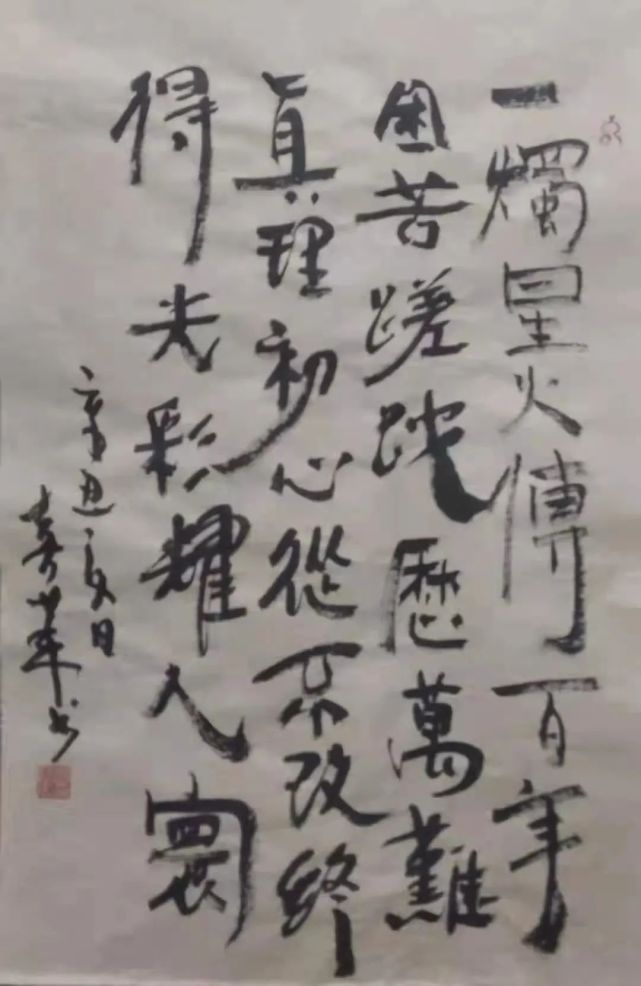 一燭星火傳百年
困苦蹉跎歷萬難
真理初心從不改終
得光彩耀人寰
辛丑夏日
喜華书